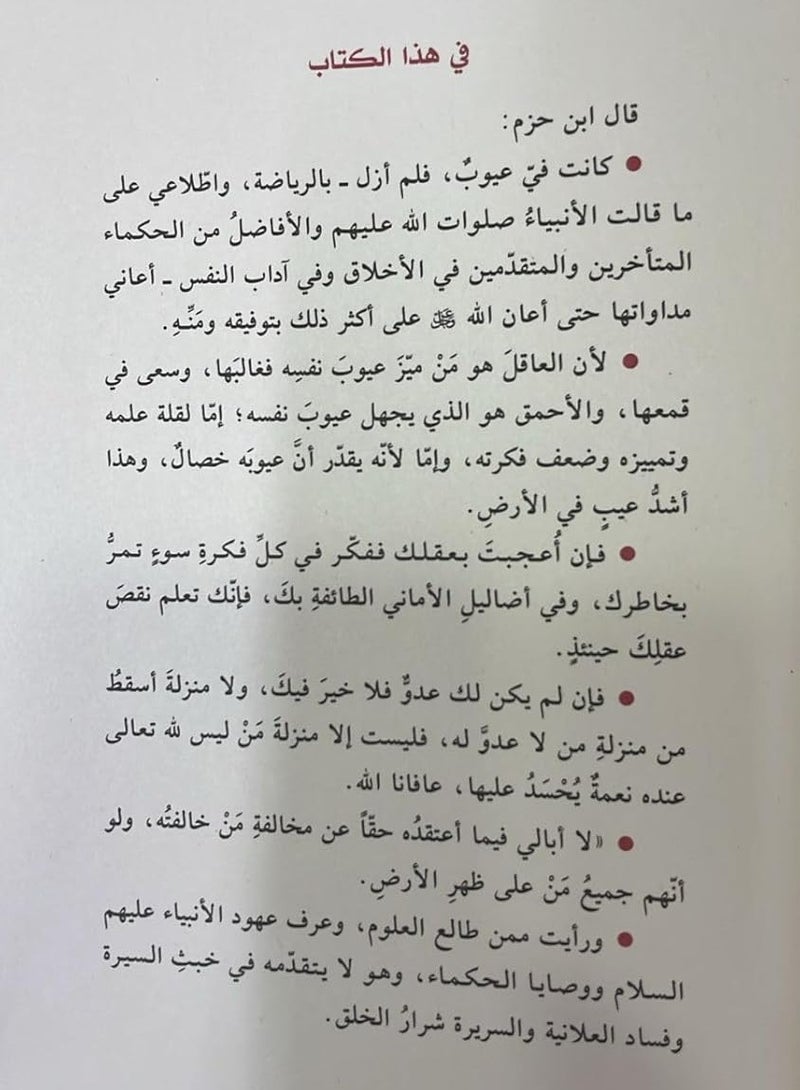 في هذا الكتاب
قال ابن حزم:
● كانت فيّ عيوبٌ، فلم أزل ـ بالرياضة، واطّلاعي على
ما قالت الأنبياءُ صلوات الله عليهم والأفاضلُ من الحكماء
المتأخرين والمتقدّمين في الأخلاق وفي آداب النفس ـ أعاني
مداواتها حتى أعان الله ﷻ على أكثر ذلك بتوفيقه ومَنِّـهِ.
● لأن العاقلَ هو مَنْ ميّزَ عيوبَ نفسِه فغالبَها، وسعى في
قمعها، والأحمق هو الذي يجهل عيوبَ نفسه؛ إمّا لقلة علمه
وتمييزه وضعف فكرته، وإمّا لأنّه يقدّر أنَّ عيوبَه خصالٌ، وهذا
أشدُّ عيبٍ في الأرضِ.
● فإن أُعجبتَ بعقلك ففكّر في كلِّ فكرةِ سوءٍ تمرُّ
بخاطرك، وفي أضاليلِ الأماني الطائفةِ بكَ، فإنّك تعلم نقصَ
عقلِكَ حينئذٍ.
● فإن لم يكن لك عدوٌّ فلا خيرَ فيكَ، ولا منزلةَ أسقطُ
من منزلةِ من لا عدوَّ له، فليست إلا منزلةَ مَنْ ليس لله تعالى
عنده نعمةٌ يُحْسَدُ عليها، عافانا الله.
● «لا أبالي فيما أعتقدُه حقّاً عن مخالفةِ مَنْ خالفتُه، ولو
أنّهم جميعُ مَنْ على ظهرِ الأرضِ.
● ورأيت ممن طالع العلوم، وعرف عهود الأنبياء عليهم
السلام ووصايا الحكماء، وهو لا يتقدّمه في خبثِ السيرة
وفساد العلانية والسريرة شرارُ الخلق.